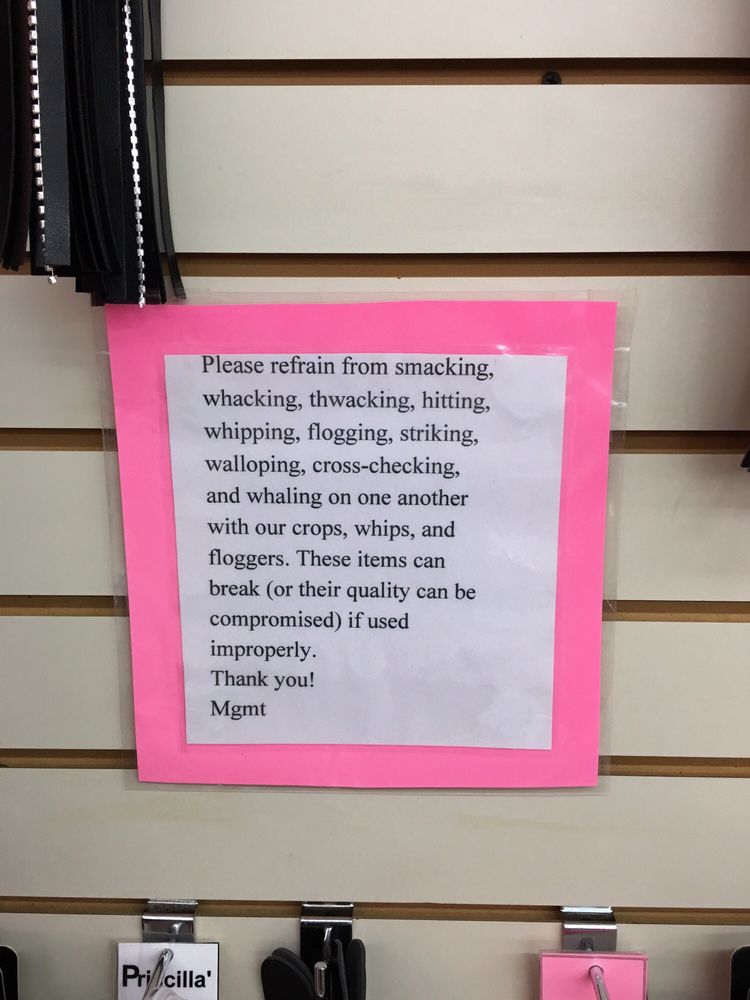 Please refrain from smacking,
whacking, thwacking, hitting,
whipping, flogging, striking,
walloping, cross-checking,
and whaling on one another
with our crops, whips, and
floggers. These items can
break (or their quality can be
compromised) if used
improperly.
Thank you!
Mgmt
Priscilla'